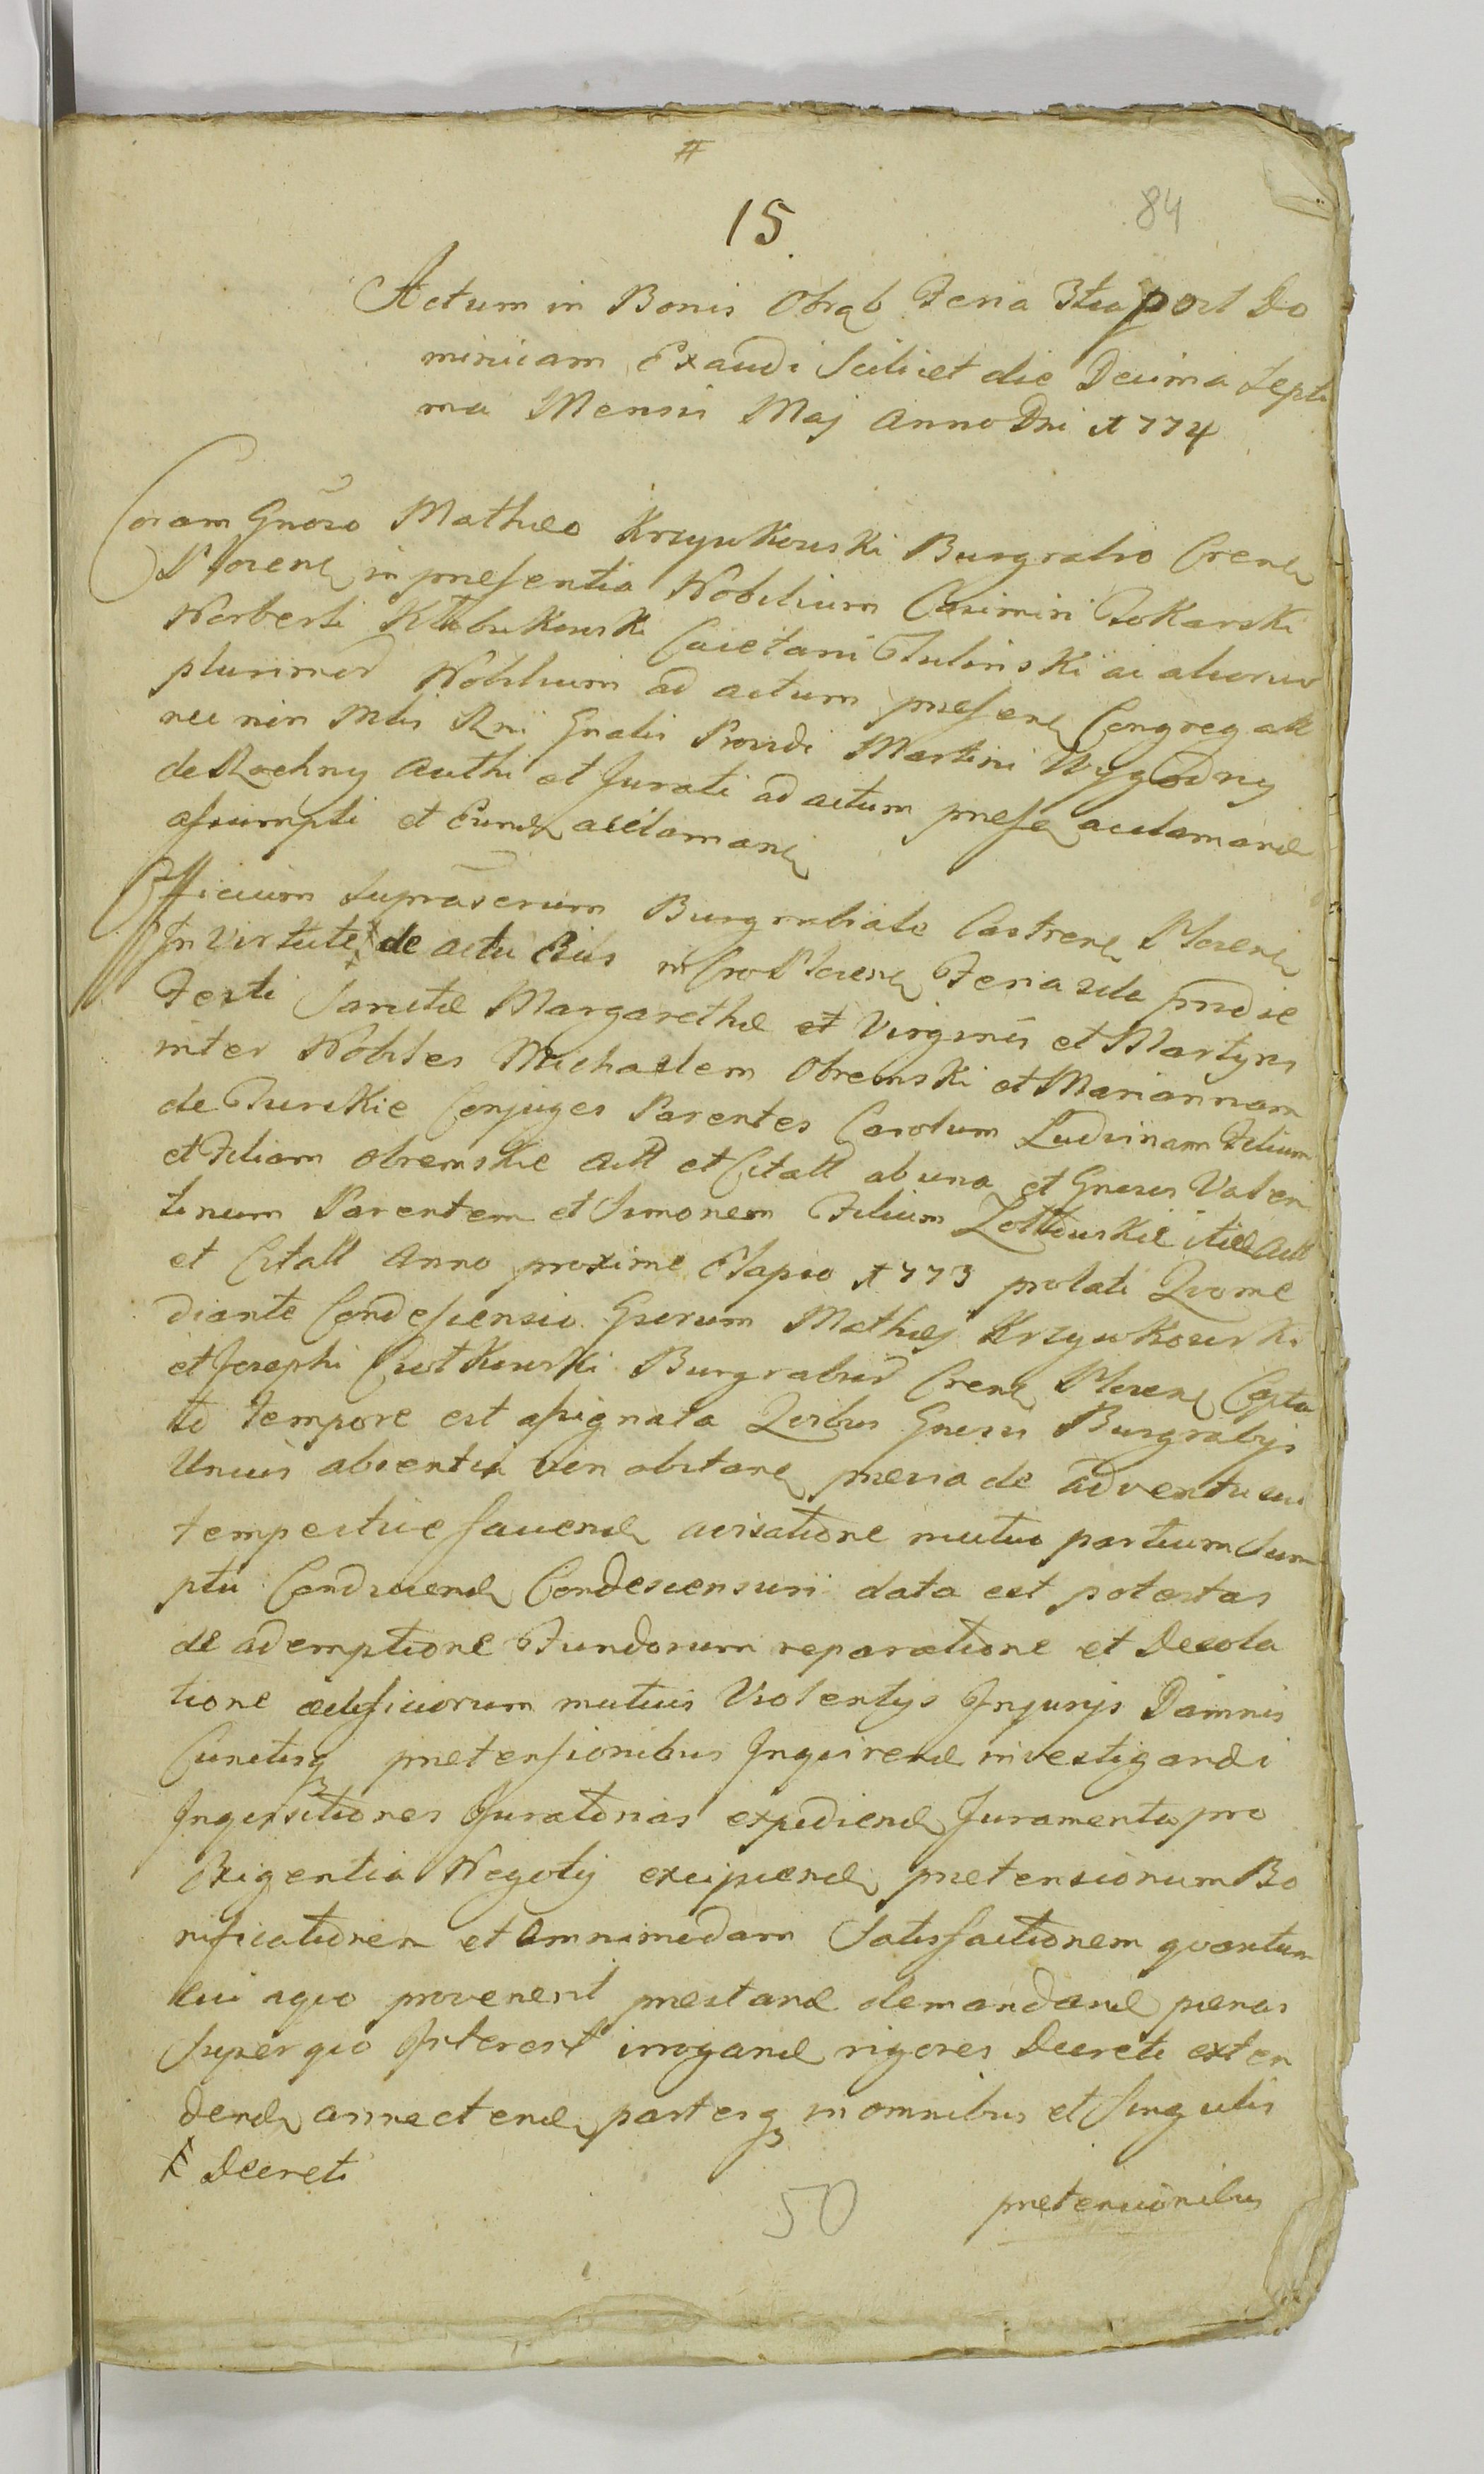 #
15
84
Actum in Bonis Obręb Feria 3tia post Do
minicam Exaudi Scilicet die Decima Septi
ma Mensis Maj Anno Dni 1774
Coram Gnõso Mathæo Krzywkowski Burgrabio Crens
Plocens in præsentia Nobilium Casimiri Tokarski
Norberti Kłobukowski Caietani Tulinski ac aliorum
plurimor Nobilium ad actum præsens Congregatt
nec non Mlis Rni Gnalis Providi Martini Wygodny
de Rochny Authi et Jurati ad actum præse acclamand
assumpti et Eund acclamans
Officium Suprascrium Burgrabiale Castrens Plocens
In Virtute de actu Eius in Cro Plocens Feria 2da pridie
Festi Sanctæ Margarethæ et Virginis et Martyris
inter Nobiles Michaelem Obremski et Mariannam
de Turskie Conjuges Parentes Carolum Ludvinam Filium
et Filiam Obremskie Actt et Citatt ab una et Gnosos Valen
tinum Parentem et Simonem Filium Zottowskie itidem Actt
et Citatt Anno proxime Elapso 1773 prolati Quo me
diante Condescensio Gsorum Mathæj Krzywkowski
et Josephi Cwotkowski Burgrabior Crens Plocens Capta
to tempore est assignata Quibus Gnosis Burgrabijs
Unius absentia non obstans prævia de adventu sui
tempestive faciend avisatione mutuo partium Sum
ptu Conducend Condescensuri data est potestas
de ademptione Fundorum reparatione et Desola
tione ædificiorum mutuis Violentijs Injurijs Damnis
Cunctisq prætensionibus Inquirend investigandi
Inquisitiones Juratorias expediend Juramenta pro
Exigentia Negotij excipiend prætensionum Bo
nificationem et omnimodam Satisfactionem quantum
cui aquo provenerit præstand demandand pænas
Super quo Interest irrogand rigores Decreti exten
dend annectend partesq in omnibus et Singulis
Decreti
50
prætensionibus